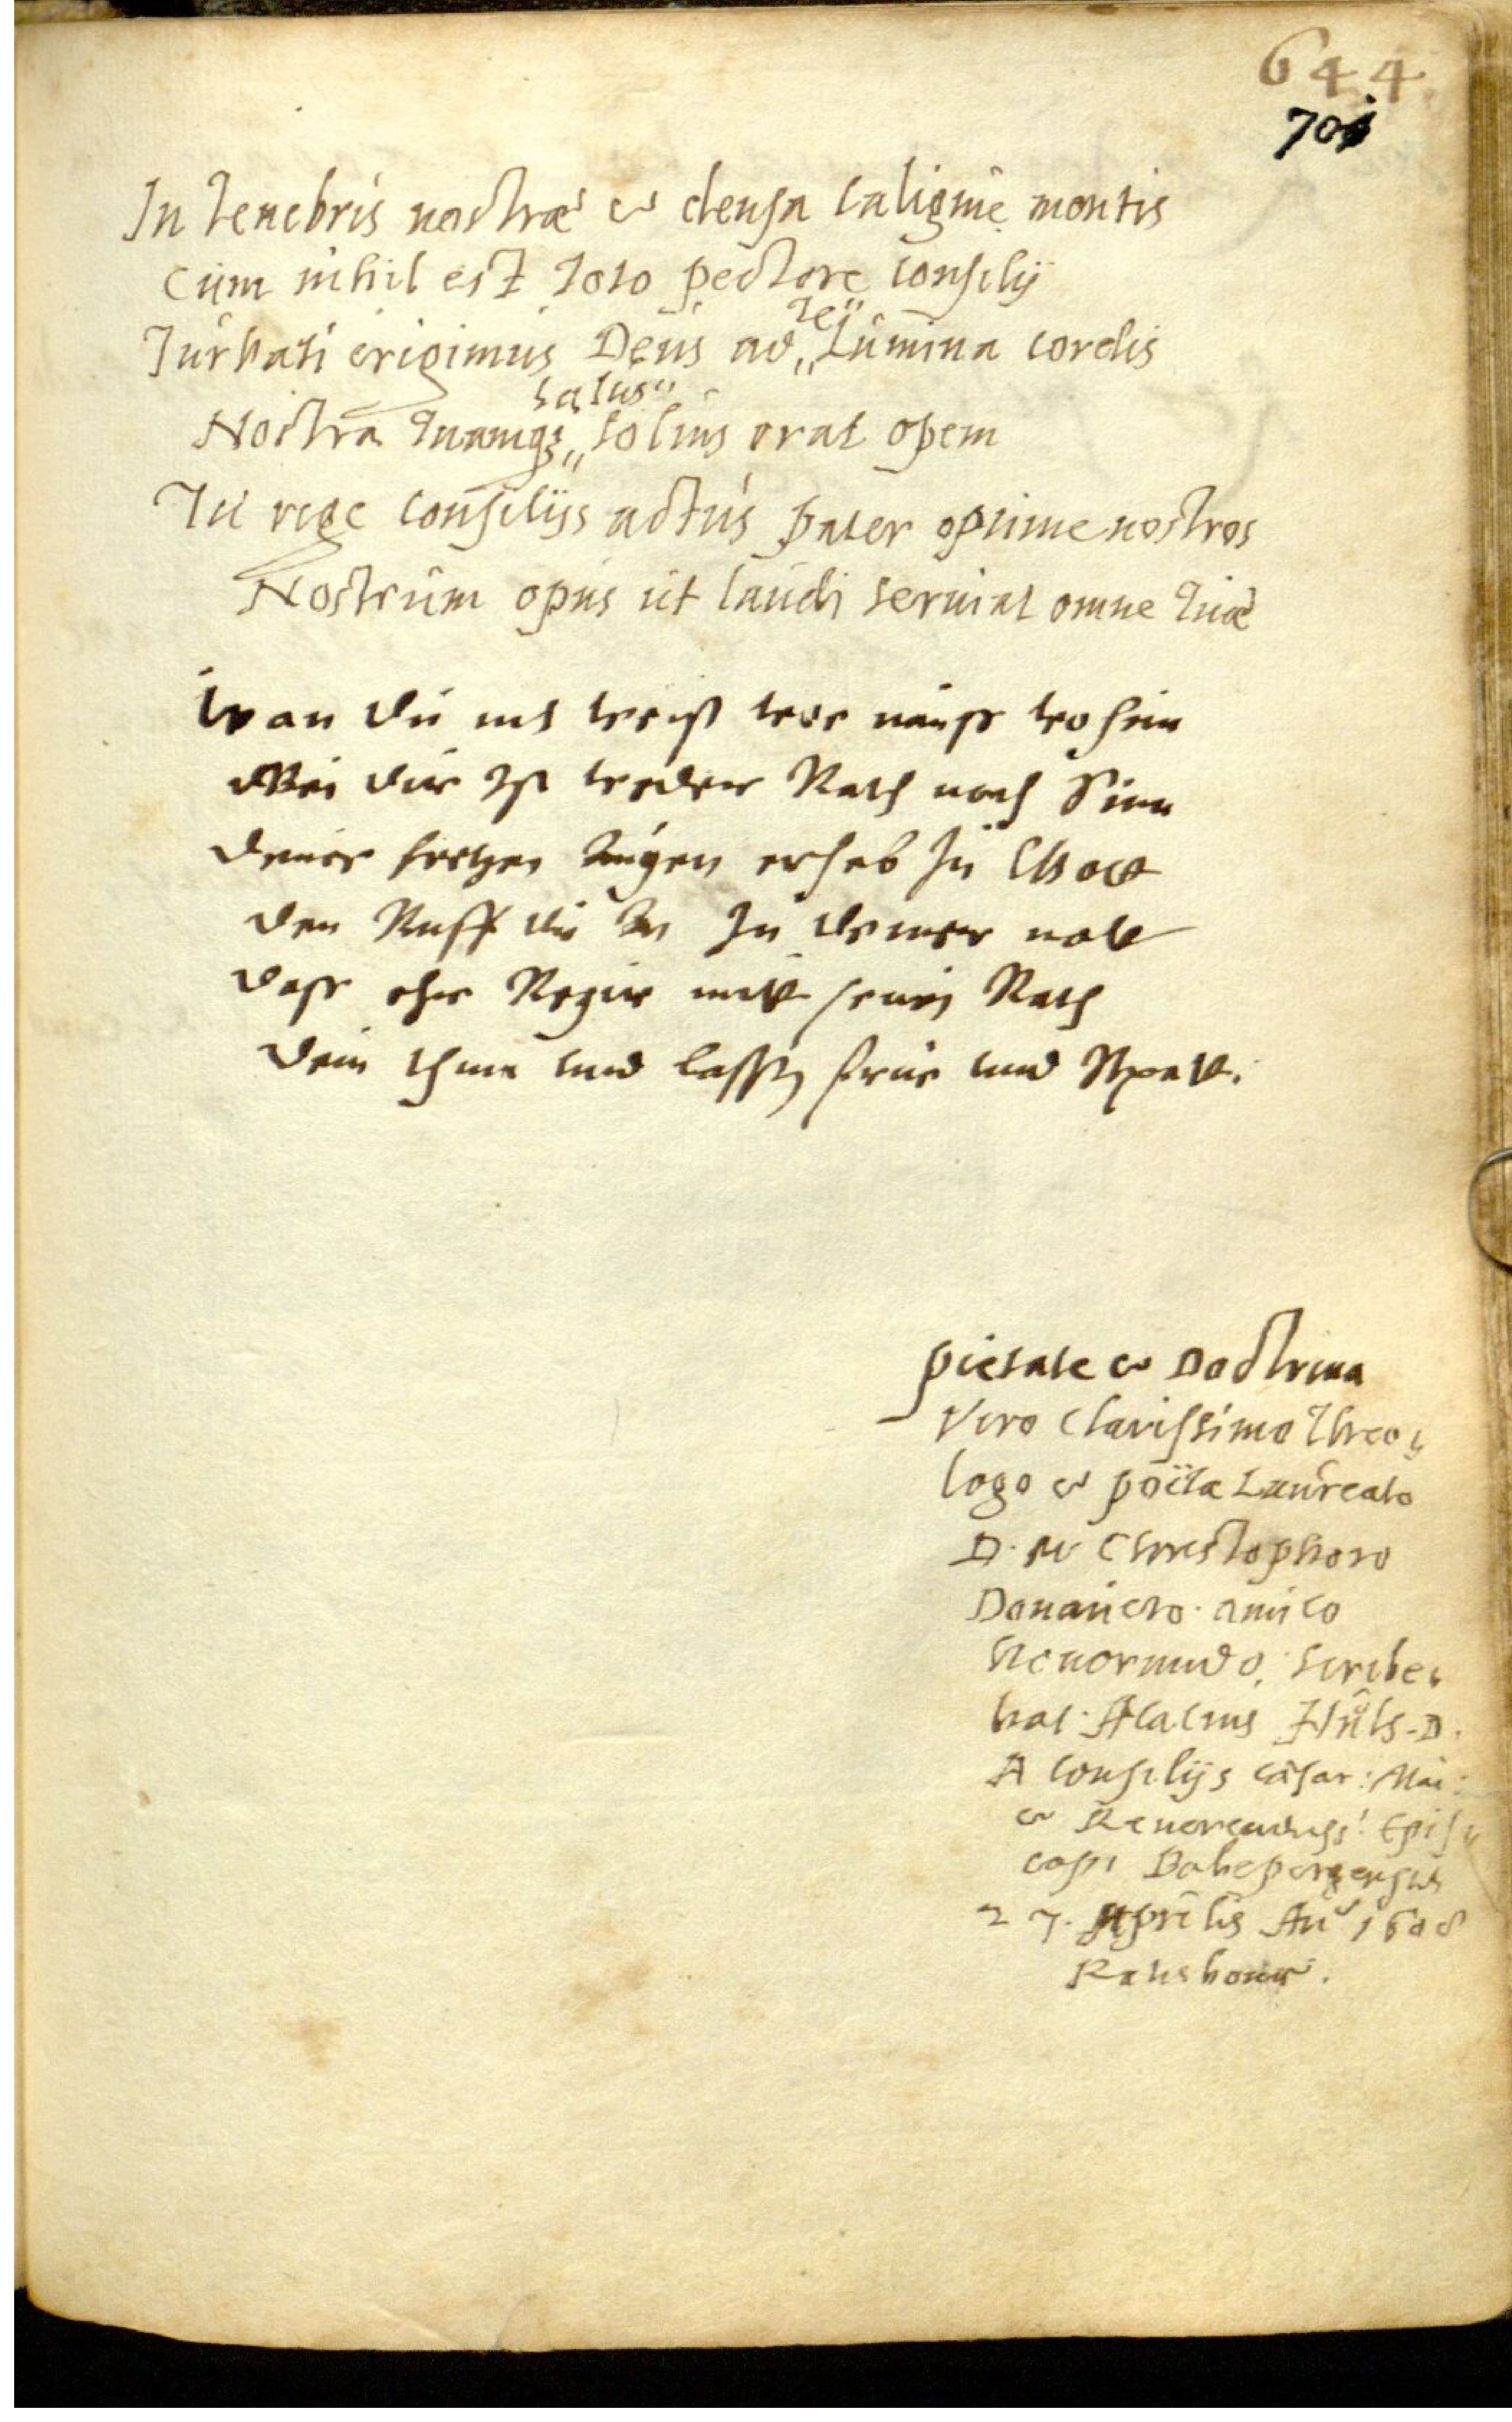 644.
701
In tenebris nostræ & densa caligine mentis
Cum nihil est toto pectore consilij
Turbati erigimus Deus ad „ te " Lumina cordis
Nostra tuamq; „ salus " solius orat opem
Tu rege consilijs actus pater optime nostros
Nostrum opus ut laudi seruiat omne tuæ
Wan du nit weist wer nauss wo hin
Bei dir Ist weder Rath noch Sinn
deine hertzen Augen erheb zu Gott
den Ruff du An In deiner nott
dass ehr Regir mit seinen Rath
dein thun und lassen frue und Spatt.
pietate & Doctrina
Viro Clarissimo Theo-
logo & poëta Laureato
D. M Christophoro
Donauero. amico
Honorando, scribe-
bat. Acatius Hüls. D.
A Consilijs Cæsar: Mai:
& Reuerendiss! Epis-
copi Babepergensis
27. Aprilis An 1608
Ratisbonæ.